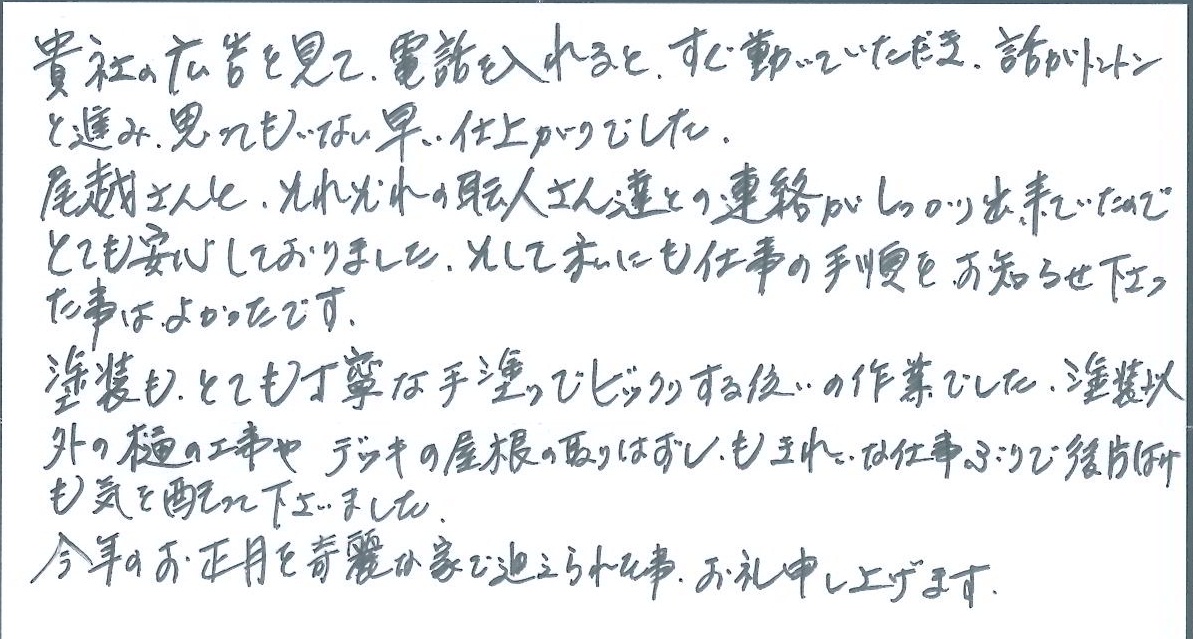 貴社の広告を見て、電話を入れると、すぐ動いていただき、話がトントン
と進み、思ってもいない早い仕上がりでした。
尾越さんと、それぞれの職人さん達との連絡がしっかり出来ていたので
とても安心しておりました、そして私にも仕事の手順をお知らせ下さっ
た事は、よかったです。
塗装も、とても丁寧な手塗りでビックリする位いの作業でした、塗装以
外の樋の工事や デッキの屋根の取りはずしもきれいな仕事ぶりで後片付け
も気を配って下さいました。
今年のお正月を奇麗な家で迎えられた事、お礼申し上げます。